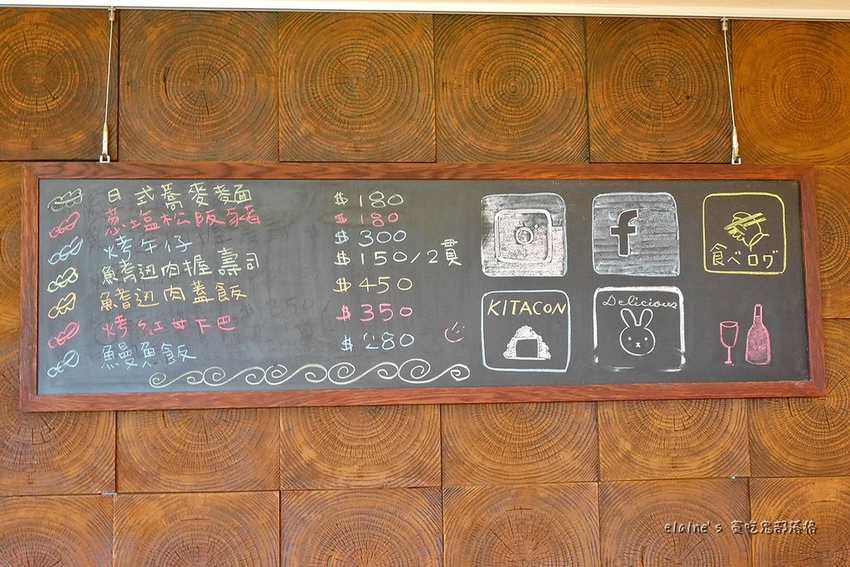 日式蕎麥麵 $180
蔥塩松阪豬 $180
烤午仔 $300
魚翅肉握壽司 $150/2貫
魚翅肉蓋飯 $450
烤紅甘下巴 $350
鰻魚飯 $280
f
食べログ
KITACON
Delicious
elaine's 貪吃鬼部落格